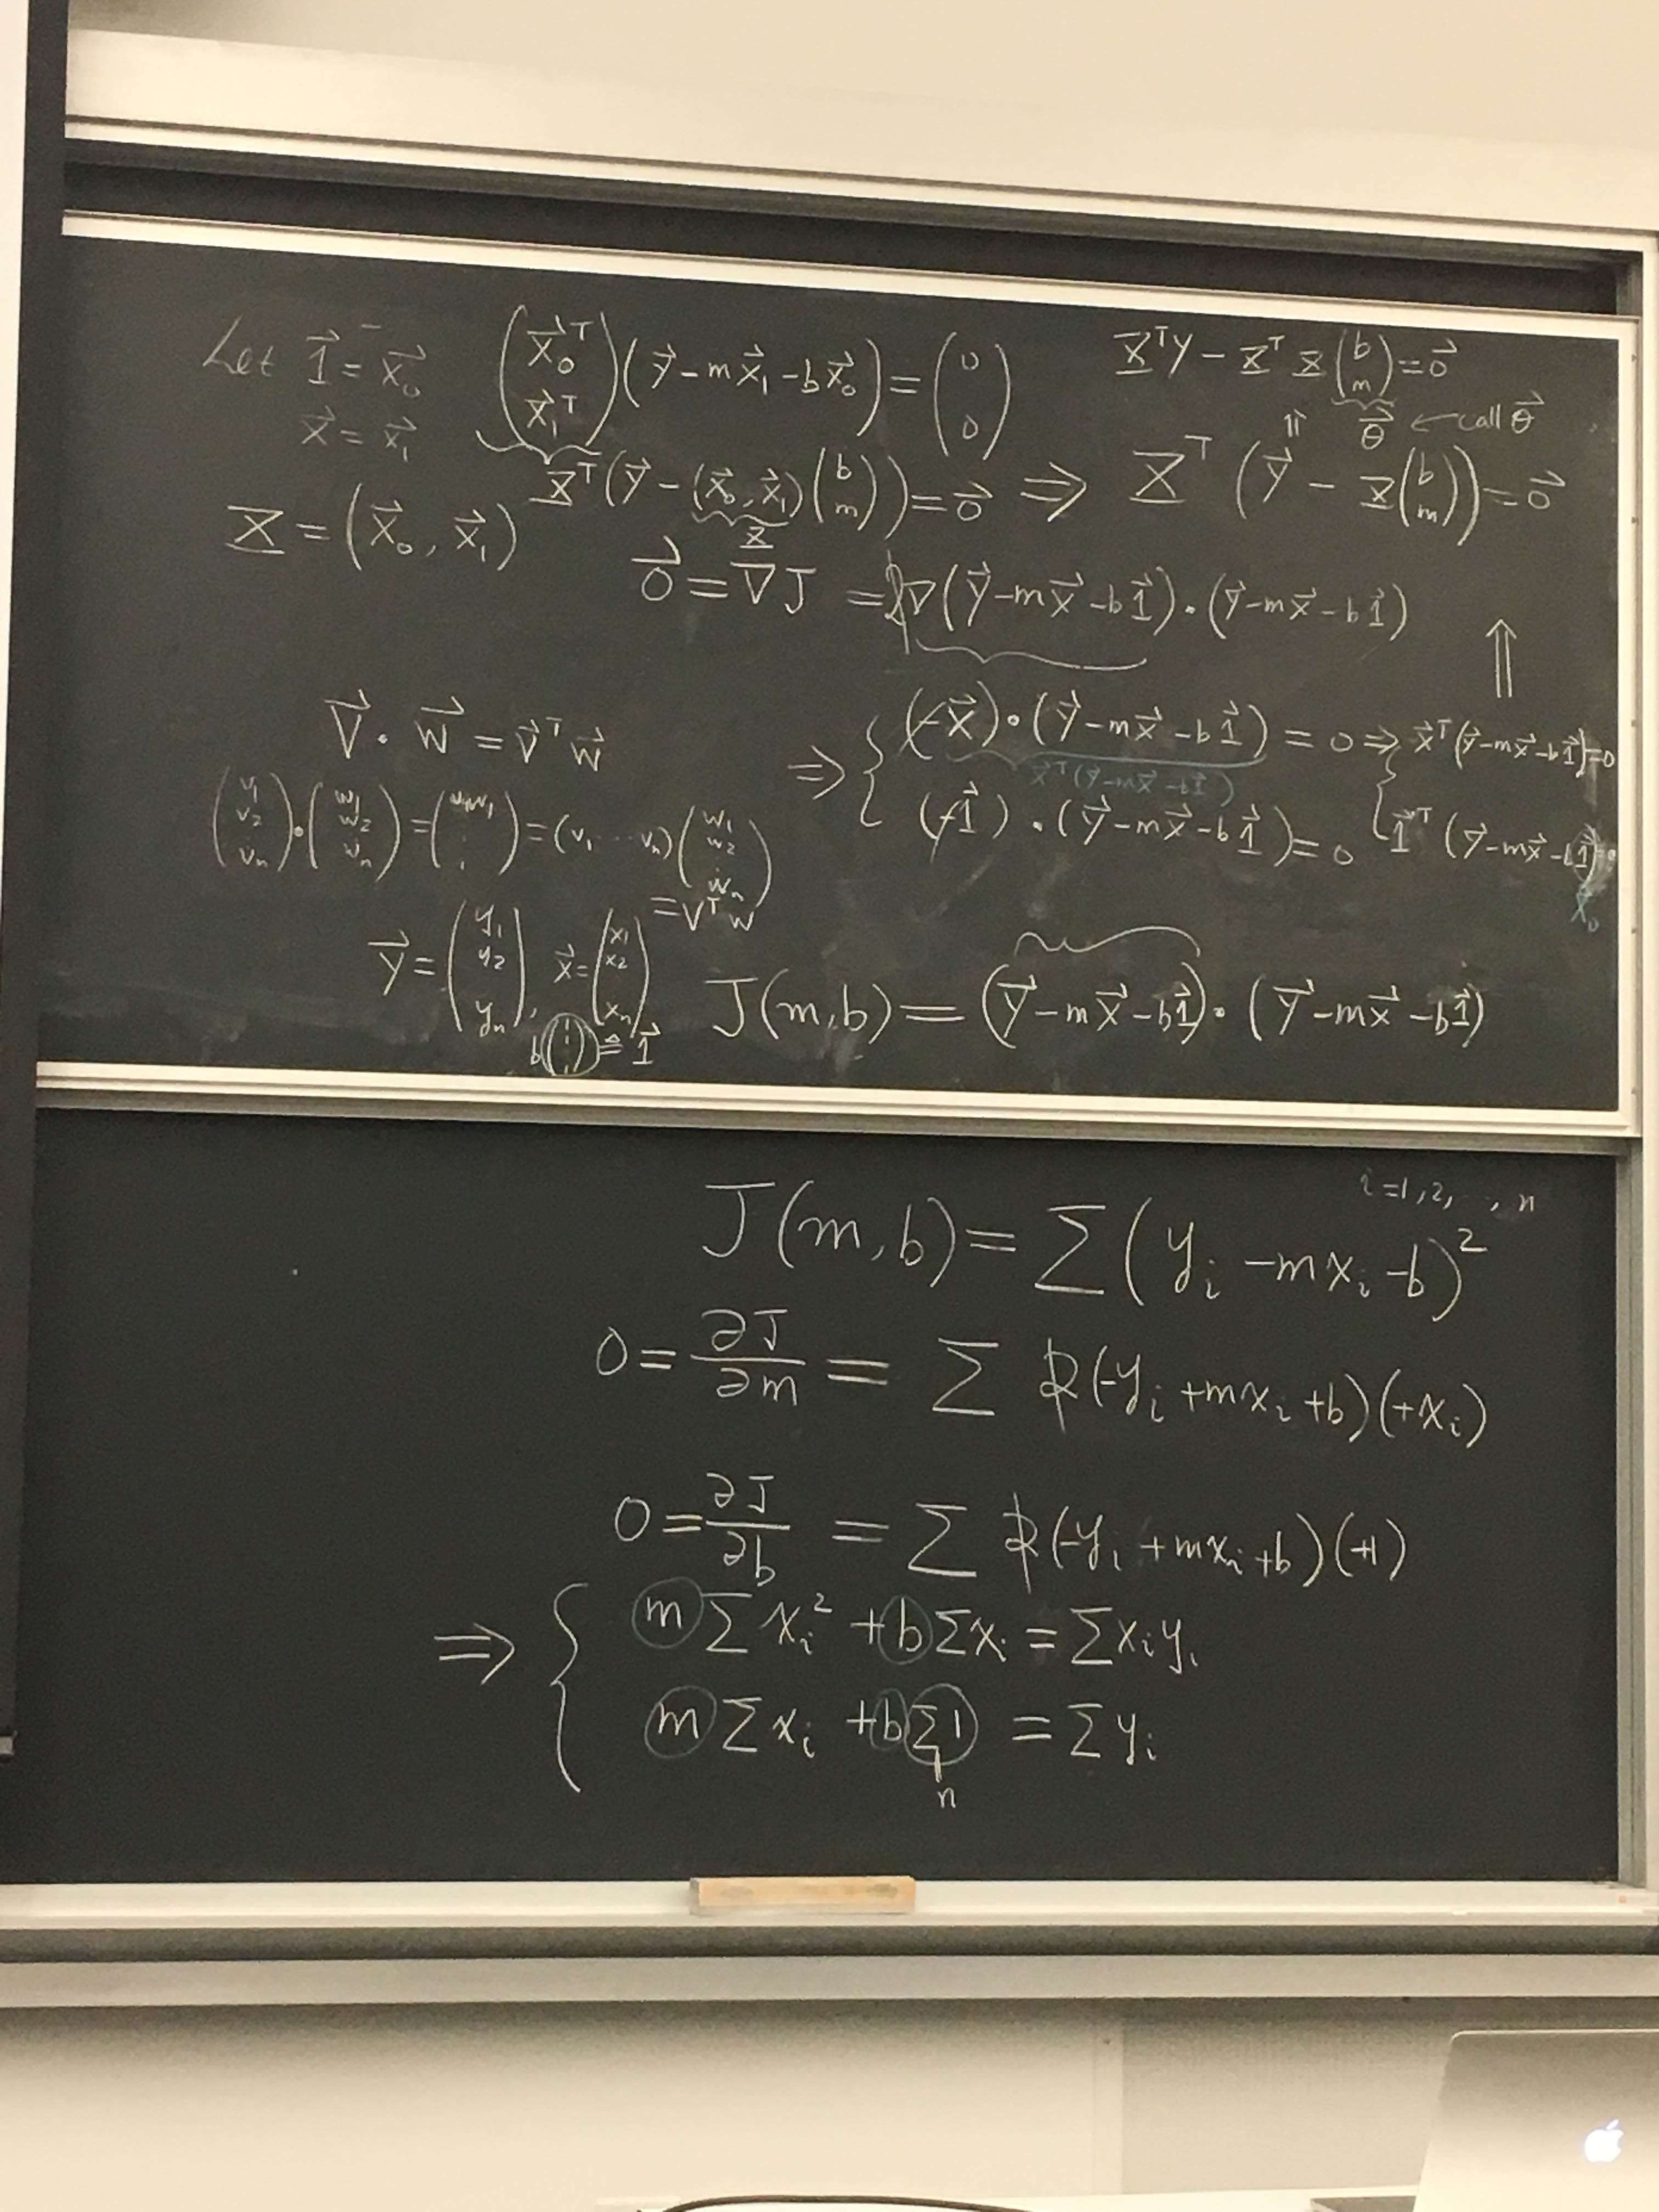 Let 1⃗ = x⃗₀
x⃗ = x⃗₁
(x⃗₀ᵀ x⃗₁ᵀ)(y⃗ - m x⃗₁ - b x⃗₀) = (0 0)
X̲ᵀy - X̲ᵀ X̲ (b m) = 0⃗
⇑ θ⃗ ← call θ⃗
X̲ = (x⃗₀, x⃗₁)
X̲ᵀ(y⃗ - (x⃗₀, x⃗₁)(b m)) = 0⃗ ⇒ X̲ᵀ (y⃗ - X̲(b m)) = 0⃗
X̲
0⃗ = ∇⃗J = 2∇(y⃗ - m x⃗ - b 1⃗) · (y⃗ - m x⃗ - b 1⃗)
⇑
v⃗ · w⃗ = v⃗ᵀ w⃗
⇒ { (-x⃗) · (y⃗ - m x⃗ - b 1⃗) = 0 ⇒ x⃗ᵀ(y⃗ - m x⃗ - b 1⃗) = 0
x⃗ᵀ(y⃗ - m x⃗ - b 1⃗)
(-1⃗) · (y⃗ - m x⃗ - b 1⃗) = 0 { 1⃗ᵀ (y⃗ - m x⃗ - b 1⃗) = 0
x⃗₀
(v₁ v₂ ⋮ vₙ) · (w₁ w₂ ⋮ wₙ) = (v₁w₁ ⋮) = (v₁ ⋯ vₙ)(w₁ w₂ ⋮ wₙ)
= vᵀw
y⃗ = (y₁ y₂ yₙ), x⃗ = (x₁ x₂ xₙ)
b(⋮) ≜ 1⃗
J(m,b) = (y⃗ - m x⃗ - b 1⃗) · (y⃗ - m x⃗ - b 1⃗)
i = 1, 2, .., n
J(m,b) = Σ (yᵢ - m xᵢ - b)²
0 = ∂J/∂m = Σ 2(-yᵢ + m xᵢ + b)(+xᵢ)
0 = ∂J/∂b = Σ 2(-yᵢ + m xᵢ + b)(+1)
⇒ { m Σ xᵢ² + b Σ xᵢ = Σ xᵢ yᵢ
m Σ xᵢ + b Σ 1 = Σ yᵢ
n